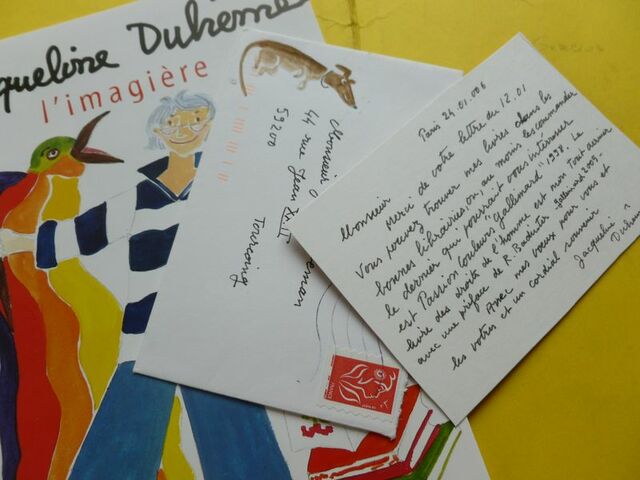 queline Duhême
l'imagière
Monsieur
44 rue Jean XXIII
59200
Tourcoing
Paris 24.01.006
Monsieur
Merci de votre lettre du 12.01
Vous pouvez trouver mes livres dans les
bonnes librairies ou, au moins les commander
le dernier qui pourrait vous intéresser
est Passion Couleurs Gallimard 1998. Le
livre des droits de l'homme est mon tout dernier
avec une préface de R. Badinter Gallimard 2005.
Avec mes vœux pour vous et
les votres et un cordial souvenir
Jacqueline
Duhême